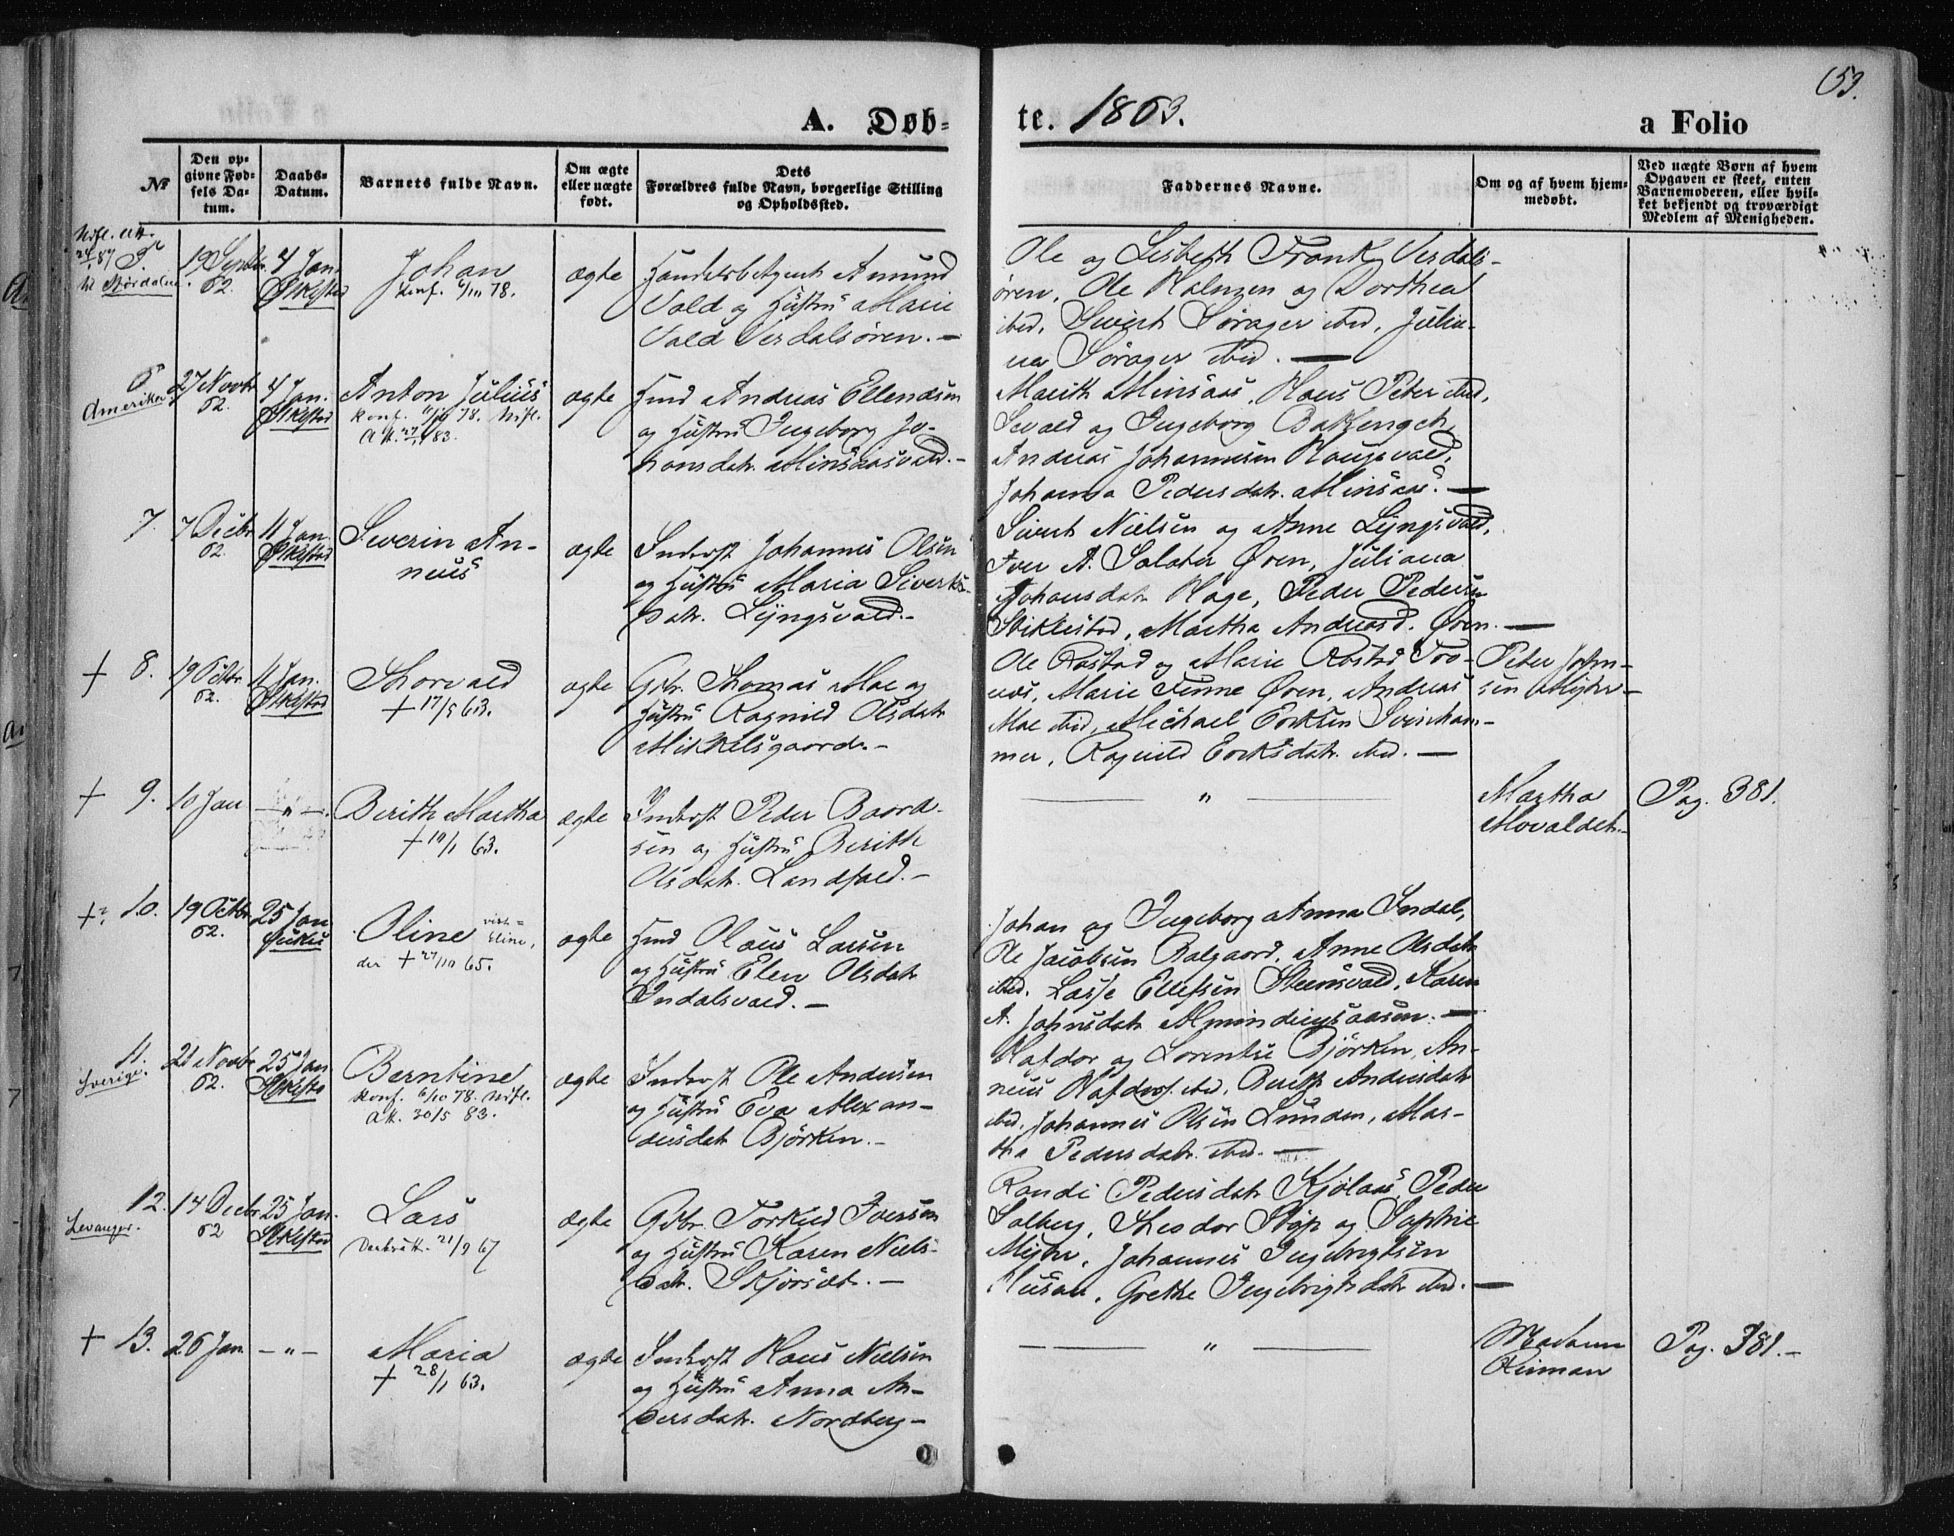 153.
A. Døb-
te. 1863.
a Folio
№
Den op-
givne Fød-
sels Da-
tum.
Daabs-
Datum.
Barnets fulde Navn.
Om ægte
eller uægte
født.
Dets
Forældres fulde Navn, borgerlige Stilling
og Opholdssted.
Faddernes Navne.
Om og af hvem hjem-
medøbt.
Ved uægte Børn af hvem
Opgaven er skeet, enten
Barnemoderen, eller hvil-
ket bekjendt og troværdigt
Medlem af Menigheden.
19 Septbr.
62.
4 Jan.
Johan
konf. 6/10 78.
ægte
Handelsbetjent Amund
Vold og Hustru Marie
Vold Verdalsøren. —
Ole og Lisbeth Frank Verdals-
øren, Ole Holmsen og Dorthea
ibid, Sivert Sørager ibid, Julia-
na Sørager ibid. —
Amerika
27 Novbr
62.
4 Jan.
Anton Julius
konf. 78.
ægte
Husd Andreas Ellendsen
og Hustru Ingeborg Jo-
hansdatr. Minsaasvald. —
Marith Minsaas, Haus Peter ibid,
Sevald og Ingeborg Bakkengch,
Andreas Johannesen Haugsvald,
Johanna Pedersdatr. Minsaas. —
7.
7 Decbr
62.
11 Jan.
Severin An-
neus
ægte
Inderst Johannes Olsen
og Hustru Maria Siverts-
datr. Lyngsvald. —
Sivert Nielsen og Anne Lyngsvald,
Iver A. Salater Øren, Juliana
Johansdatr Hage, Peder Pedersen
Stiklestad, Martha Andreasd. Øren. —
+ 8.
19 Octbr.
62.
11 Jan.
Thorvald
+ 17/5 63.
ægte
Gbr. Thomas Moe og
Hustru Ragnild Olsdatr
Mikkelsgaard. —
Ole Rostad og Marie Rostad Tro-
næs, Marie Tenne Øren, Andreas
Moe ibid, Michael Eriksen Svinham-
mer, Ragnild Eriksdatr. ibid. —
Peter John-
sen Myhr —
+ 9.
10 Jan
— " —
Berith Martha
+ 10/1 63.
ægte
Inderst Peder Baard-
sen og Hustru Berith
Olsdatr. Landfald. —
— " —
Martha
Movaldch. —
Pag. 381.
+? 10.
19 Octbr.
62.
25 Jan
Oline
+ 27/10 65.
ægte
Husd Olaus Larsen
og Hustru Elen Olsdatr
Indalsvald. —
Johan og Ingeborg Anna Indal,
Ole Jacobsen Balgaard, Anne Olsdatr
ibid. Lasse Ellefsen Steensvald, Karen
A. Johnsdatr Almindingsaasen. —
11.
Sverige.
21 Novbr
62.
25 Jan
Berntine
konf. 6/10 78. Utfl.
Att. 30/5 83.
ægte
Inderst Ole Andersen
og Hustru Eva Alexan-
dersdatr Bjørken. —
Hafdor og Lorentse Bjørken, An-
neus Hafdors. ibid, Berith Andersdatr
ibid, Johannes Olsen Lunden, Mar-
tha Pedersdatr. ibid. —
12.
Levanger.
14 Decbr
62
25 Jan.
Lars
21/9 67
ægte
Gbr. Torkild Iversen
og Hustru Karen Niels-
datr. Skjørset. —
Randi Pedersdatr Kjølaas, Peder
Solberg, Theodor Støp og Sophie
Myhr, Johannes Ingebrigtsen
Husan, Grethe Ingebrigtsdatr ibid. —
+ 13.
26 Jan.
— " —
Maria
+ 28/1 63.
ægte
Inderst Haus Nielsen
og Hustru Anna An-
dersdatr. Nordberg —
— " —
Madam
Reiman
Pag. 381. —